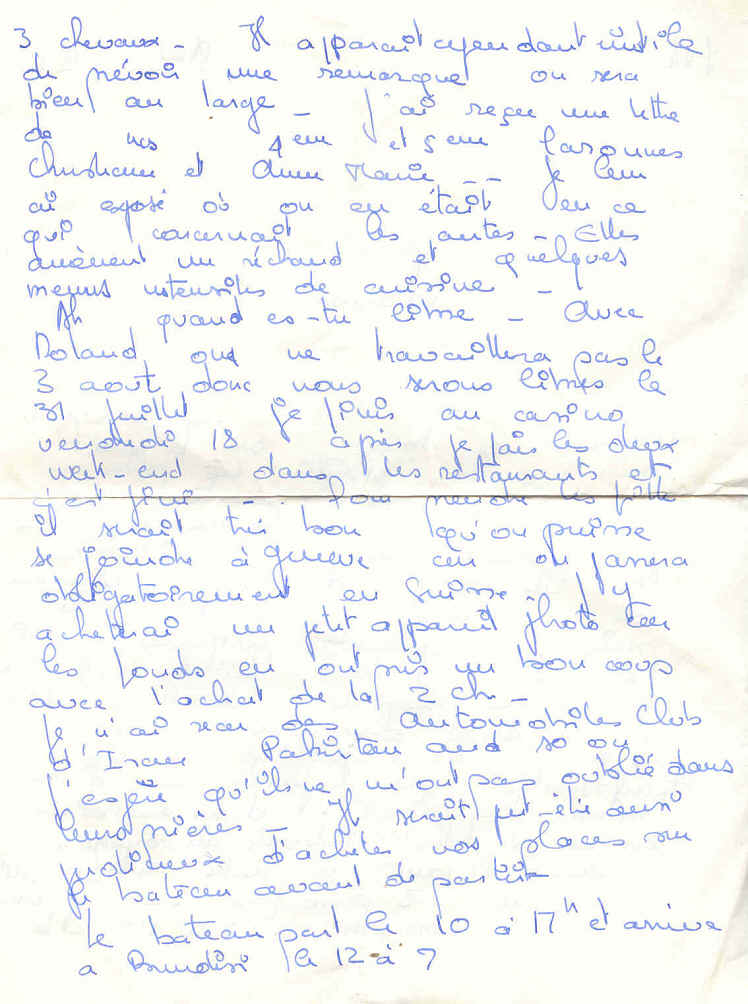 3 chevaux - Il apparaît cependant inutile
de prévoir une remorque on sera
bien au large - j'ai reçu une lettre
de nos 4em et 5em personnes
Christiane et Anne Marie -- je leur
ai exposé où on en était en ce
qui concernait les autres - Elles
amènent un réchaud et quelques
menus ustensiles de cuisine -
Ah quand es-tu libre - Avec
Roland, qui ne travaillera pas le
3 aout donc nous serons libres le
31 juillet je finis au casino
vendredi 18 après je fais les deux
week-end dans les restaurants et
c'est fini -. Pour prendre les
il serait très bon qu'on puisse
se joindre à Geneve car on passera
obligatoirement en Suisse - j'y
acheterai un petit appareil photo car
les fonds en ont pris un bon coup
avec l'achat de la 2 ch -
Je n'ai rien des Automobiles Club
d'Iran Pakistan and so on
j'espère qu'ils ne m'ont pas oublié dans
leurs prières - Il serait peut-être aussi
judicieux d'acheter nos places sur
le bateau avant de partir
Le bateau part le 10 à 17h et arrive
a Brindisi le 12 à 9